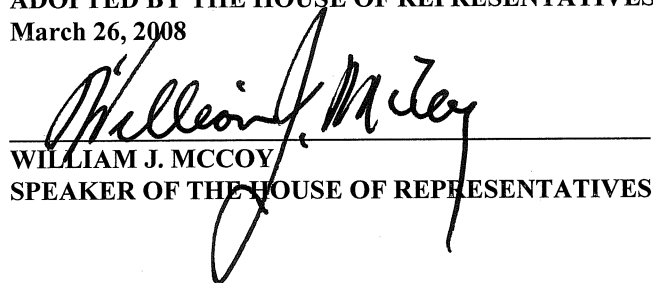 ADOPTED BY THE HOUSE OF REPRESENTATIVES
March 26, 2008
William J. McCoy
WILLIAM J. MCCOY
SPEAKER OF THE HOUSE OF REPRESENTATIVES